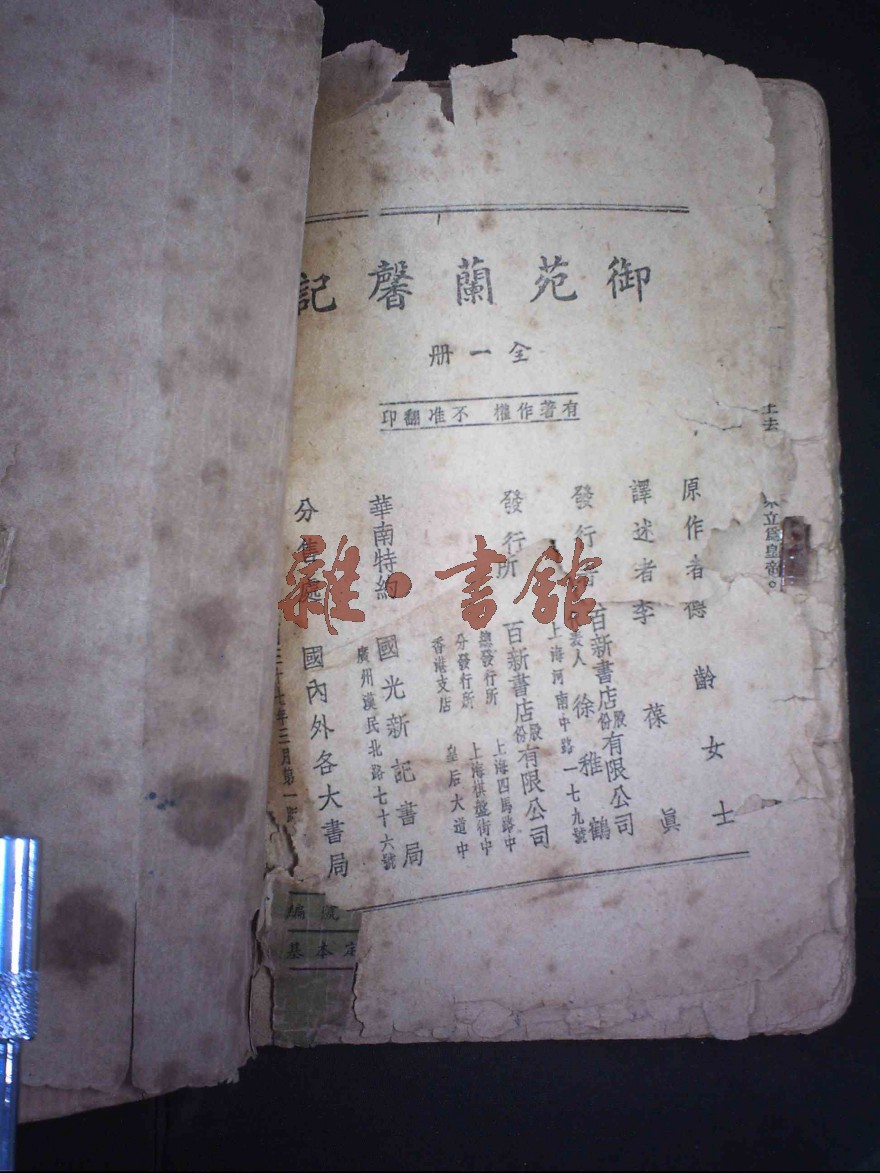 御苑蘭馨記
全一册
有著作權 不准翻印
原作者 德齡女士
譯述者 李葆眞
發行 百新書店股份有限公司
表人 徐雅鶴
上海河南中路一七九號
發行所 百新書店股份有限公司
總發行所 上海四馬路中
分發行所 上海棋盤街中
香港支店 皇后大道中
華南特約 國光新記書局
廣州漢民北路七十六號
分售處 國內外各大書局
三十七年三月第一
編號
基本定
立爲皇帝。
雜·書館